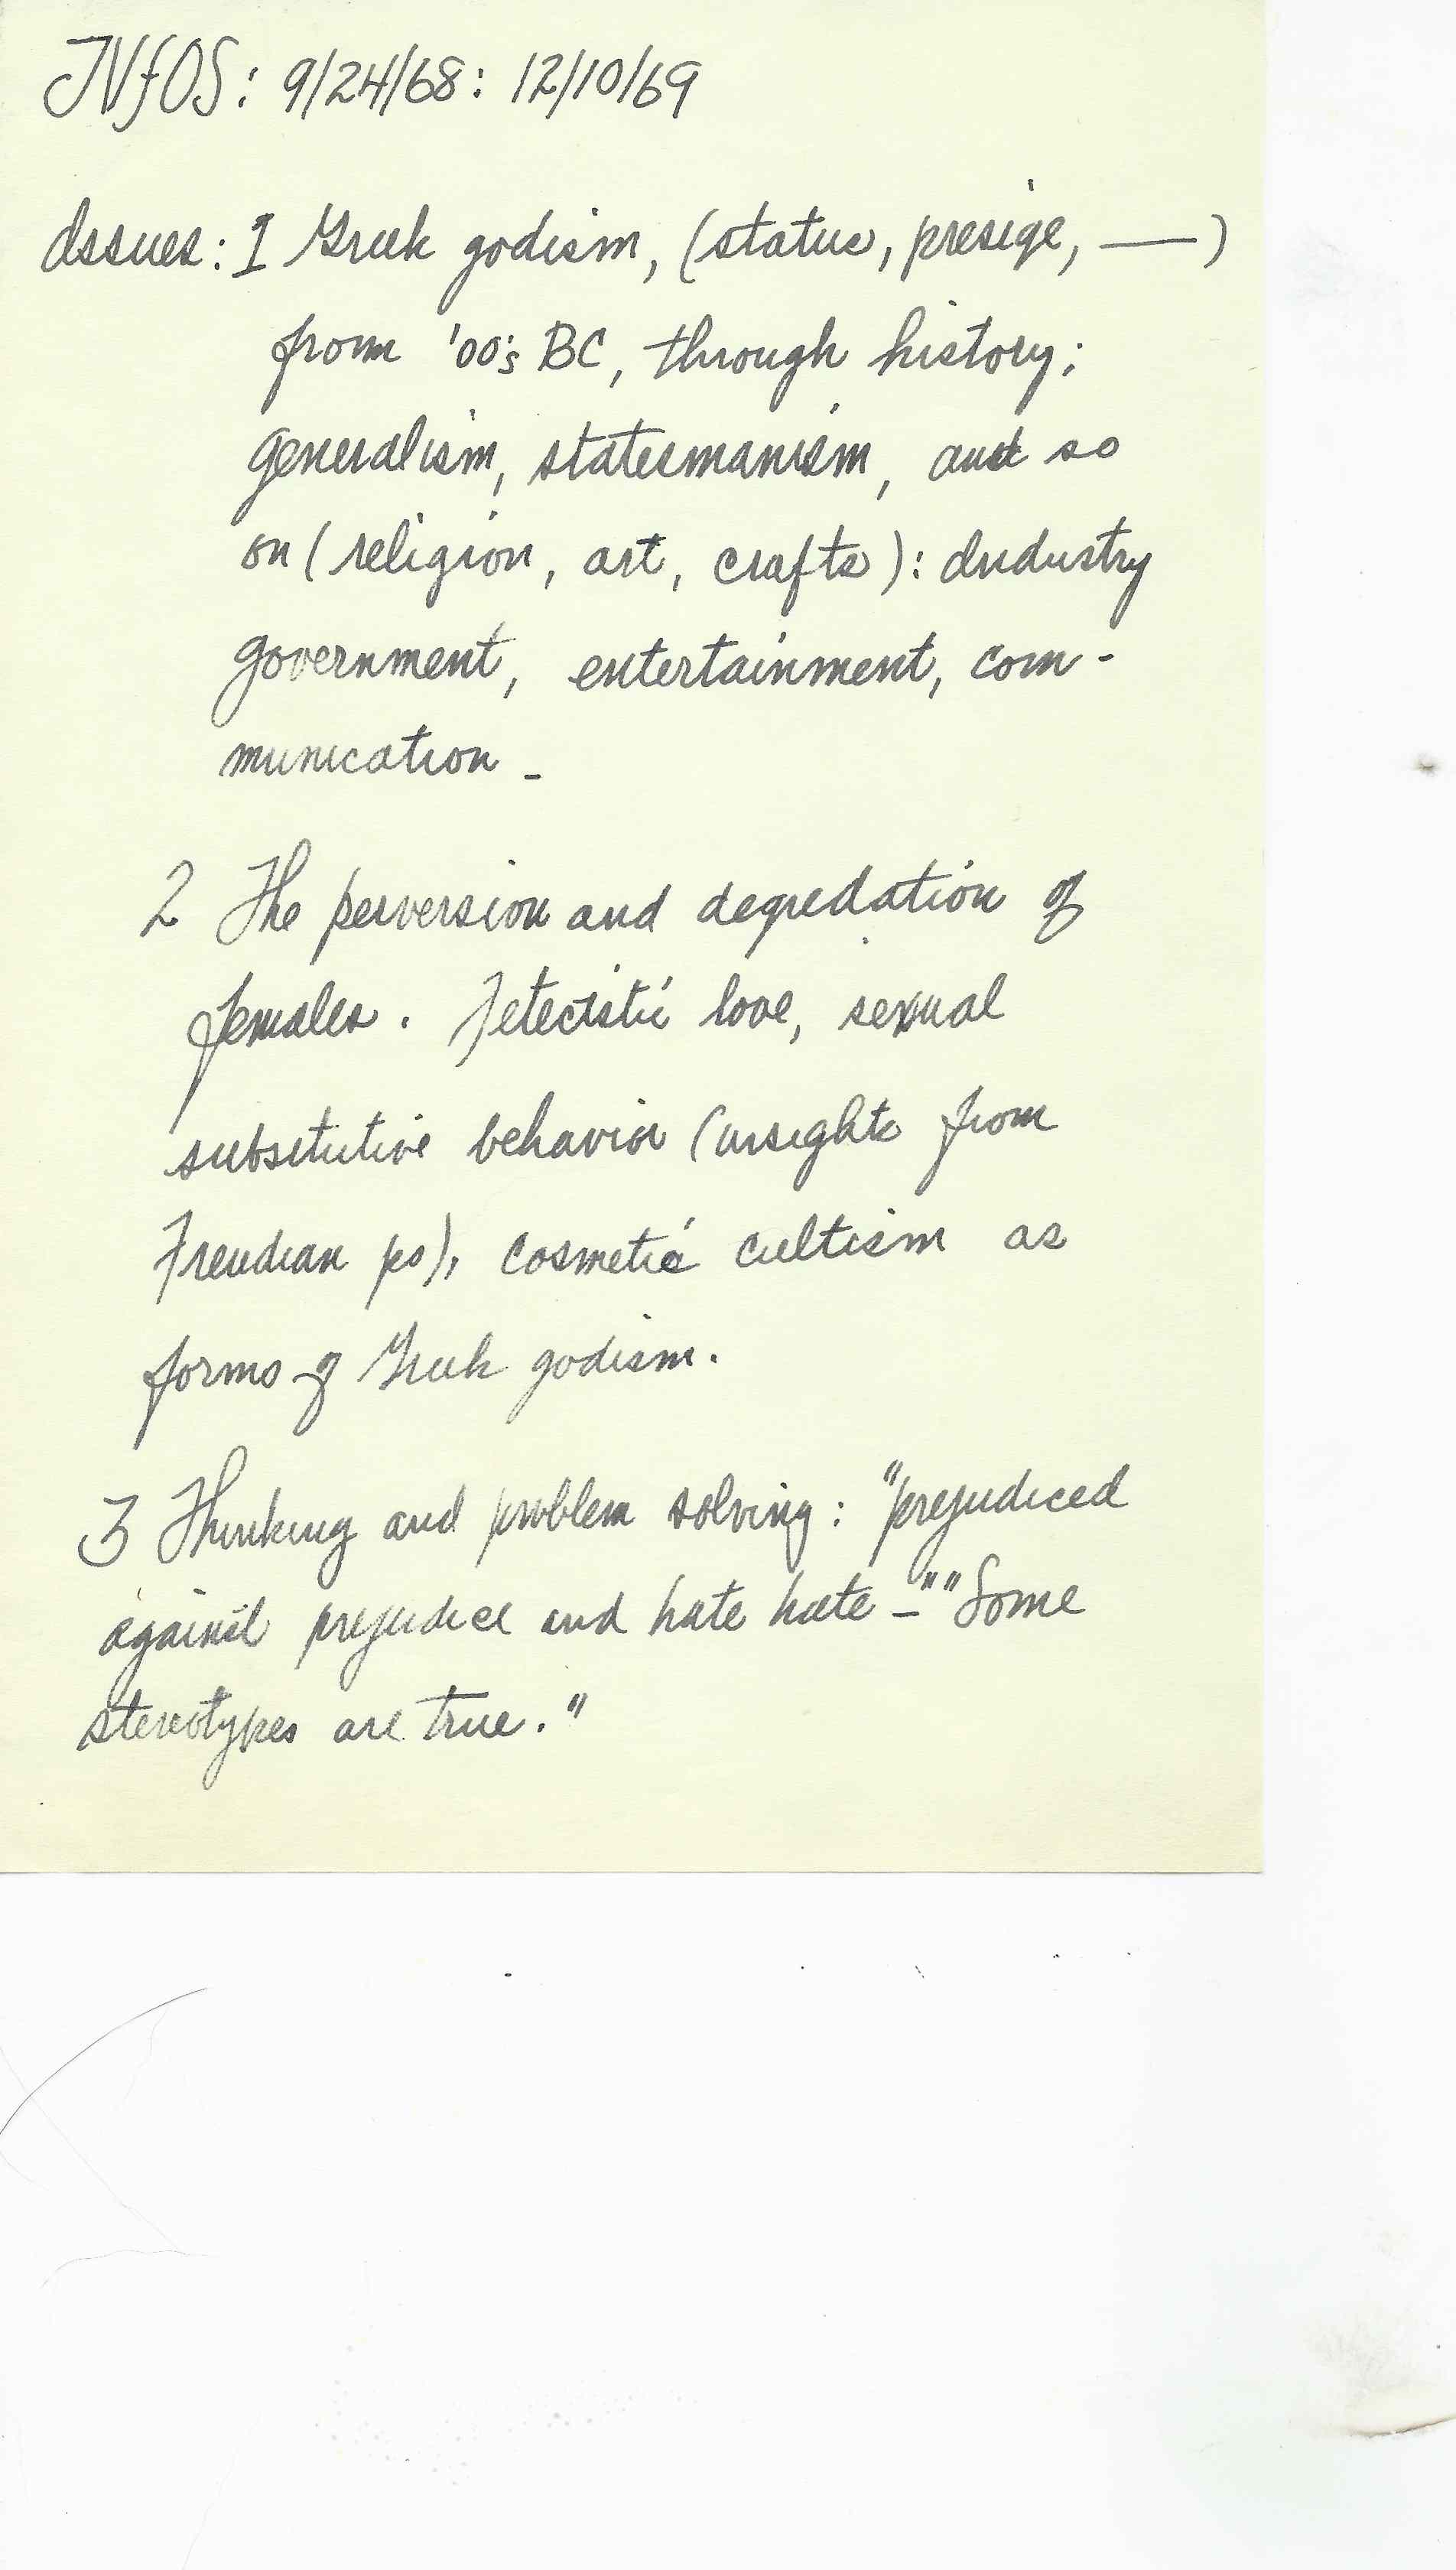 INFOS: 9/24/68: 12/10/69
Issues: 1 Greek godism, (status, presige, —)
from '00's BC, through history;
generalism, statesmanism, and so
on (religion, art, crafts): Industry
government, entertainment, com-
munication -
2 The perversion and degredation of
females. Fetecistic love, sexual
substitutive behavior (insights from
Freudian ps), cosmetic cultism as
forms of Greek godism.
3 Thinking and problem solving: "prejudiced
against prejudice and hate hate -" "Some
stereotypes are true."